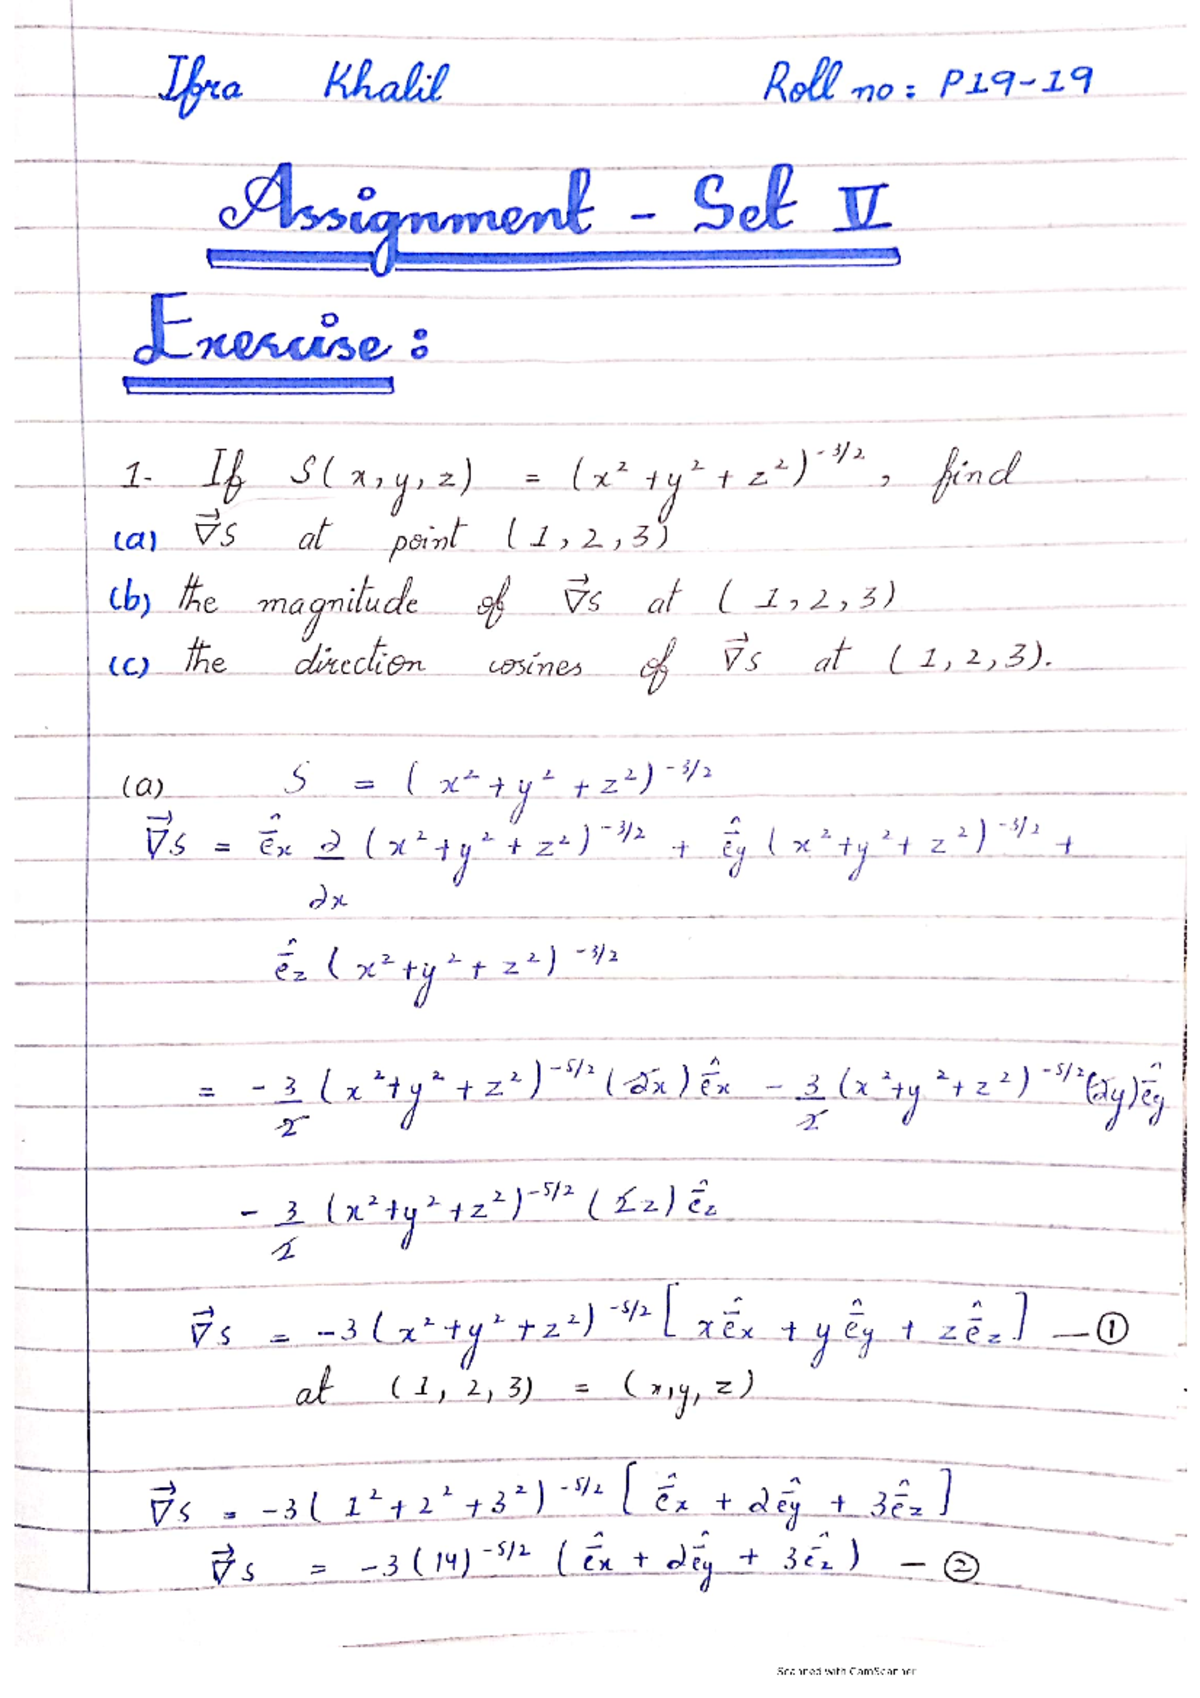 Ifra Khalil Roll no: P19-19
Assignment - Set V
Exercise:
1- If S(x,y,z) = (x²+y²+z²)^-3/2, find
(a) ∇⃗S at point (1,2,3)
(b) the magnitude of ∇⃗S at (1,2,3)
(c) the direction cosines of ∇⃗S at (1,2,3).
(a) S = (x²+y²+z²)^-3/2
∇⃗S = êx ∂/∂x (x²+y²+z²)^-3/2 + êy (x²+y²+z²)^-3/2 +
êz (x²+y²+z²)^-3/2
= -3/2 (x²+y²+z²)^-5/2 (2x) êx - 3/2 (x²+y²+z²)^-5/2 (2y) êy
- 3/2 (x²+y²+z²)^-5/2 (2z) êz
∇⃗S = -3(x²+y²+z²)^-5/2 [xêx + yêy + zêz] — ①
at (1, 2, 3) = (x,y,z)
∇⃗S = -3(1²+2²+3²)^-5/2 [êx + 2êy + 3êz]
∇⃗S = -3(14)^-5/2 (êx + 2êy + 3êz) — ②
Scanned with CamScanner